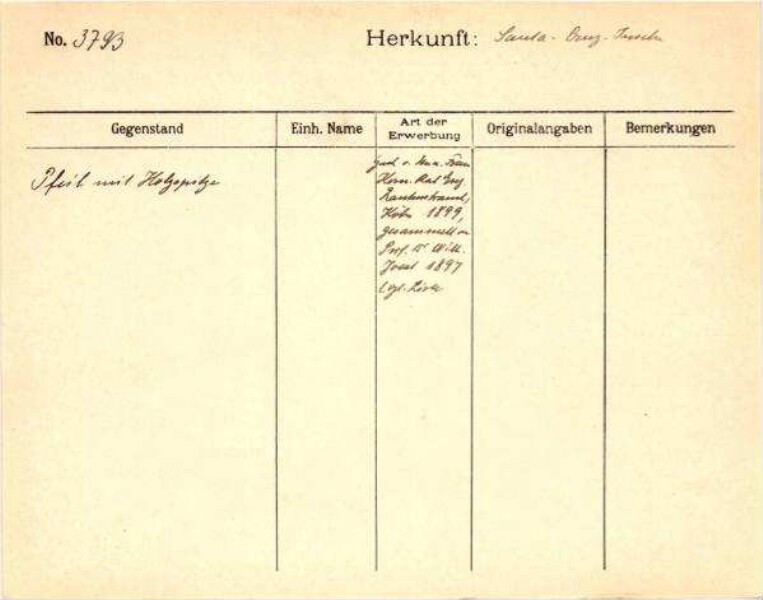 No. 3793
Herkunft: Santa-Cruz-Inseln
Gegenstand
Einh. Name
Art der Erwerbung
Originalangaben
Bemerkungen
Pfeil mit Holzspitze
Gesch. v.
Rautenstrauch,
Köln 1899,
gesammelt v.
Prof. Dr. Wilh.
Joest 1897